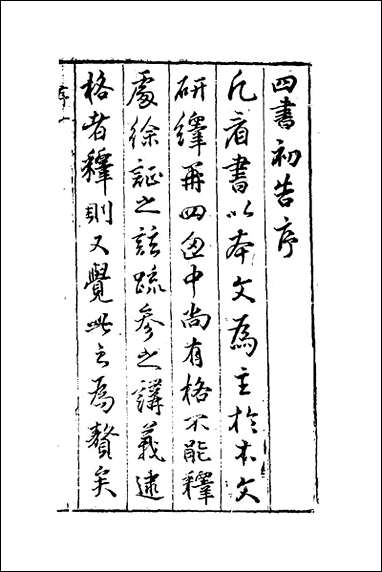 四書初告序
凡看書以本文為主於本文
研繹再四函中尚有格不能釋
處徐証之註疏參之講義逮
格者釋則又覺此之為贅矣
序一